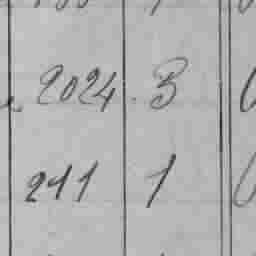 2024. B
211 1